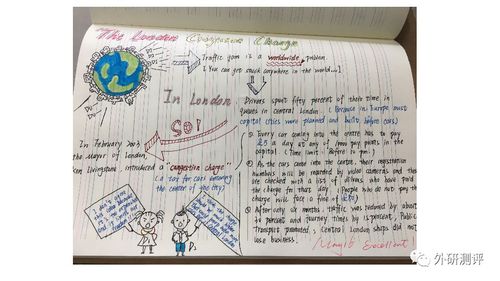 The London Congestion Charge
Traffic jam is a worldwide problem
[You can get stuck anywhere in the world...]
In London
Drivers spent fifty percent of their time in
queues in central London. (because in Europe most
capital cities were planned and built before cars)
SO!
In February 2003
the Mayor of London,
Ken Livingstone, introduced a "congestion charge"
(a tax for cars entering
the center of the city)
① Every car coming into the centre has to pay
£5 a day at any of 200 pay points in the
capital (time limit: before 10 p.m.)
② As the cars come into the centre, their registration
numbers will be recorded by video cameras and then
are checked with a list of drivers who have paid
the charge for that day. People who do not pay the
charge will face a fine of £80
③ After only six months, traffic was reduced by about
percent and journey times by 15 percent. Public
Transport promoted, Central London shops did not
lose business.
May16 Excellent!
外研测评